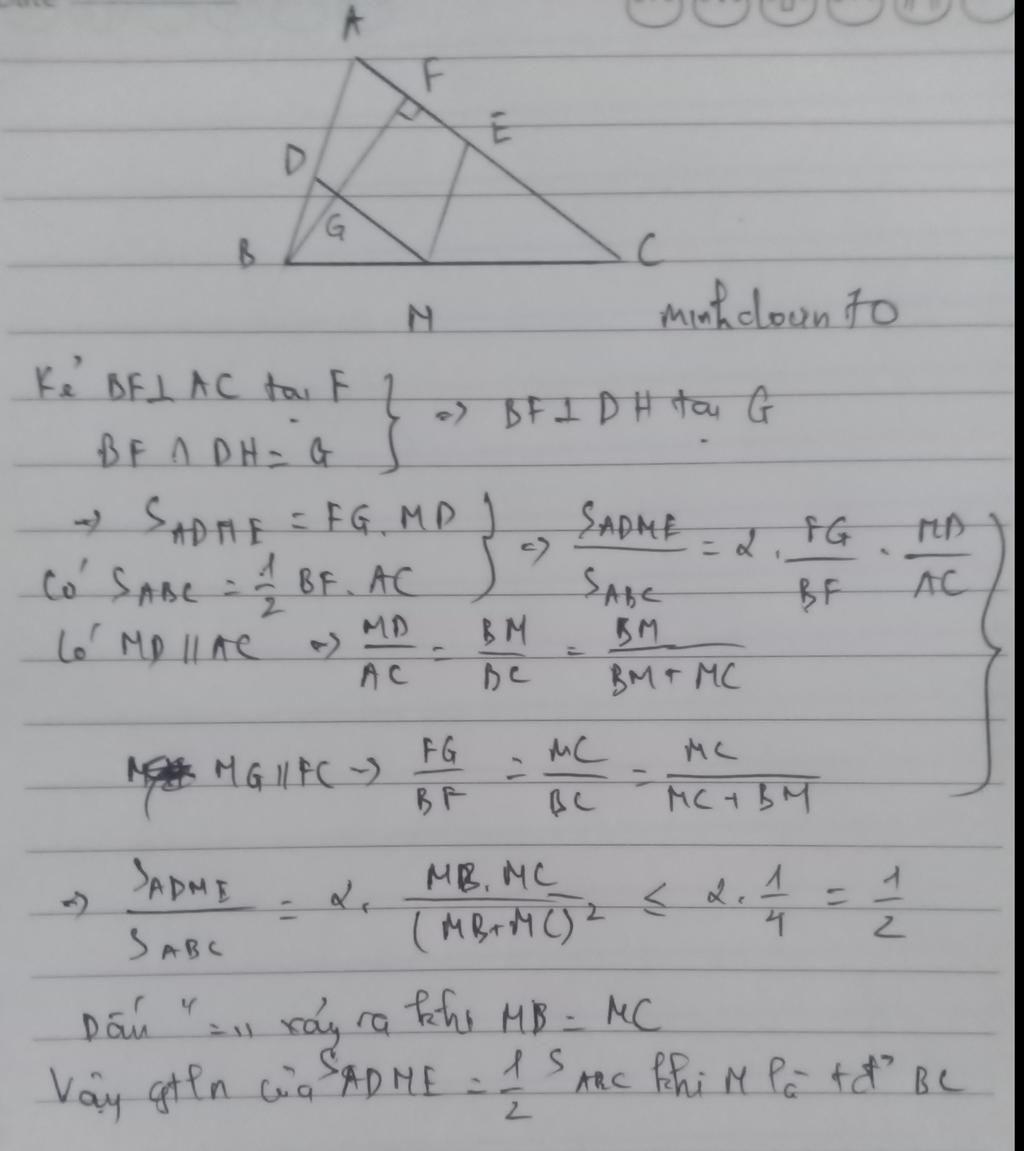 A
F
E
D
G
B
C
M
minhdoan 70
Kẻ BF⊥ AC tại F
BF ∩ DM = G
=> BF ⊥ DM tại G
=> S_ADME = FG. MD
Có S_ABC = 1/2 BF. AC
=> S_ADME/S_ABC = 2 . FG/BF . MD/AC
Có MD // AC => MD/AC = BM/BC = BM/(BM + MC)
MG // FC => FG/BF = MC/BC = MC/(MC + BM)
=> S_ADME/S_ABC = 2. (MB. MC)/(MB+MC)² ≤ 2. 1/4 = 1/2
Dấu "=" xảy ra khi MB = MC
Vậy gtln của S_ADME = 1/2 S_ABC khi M là tđ BC